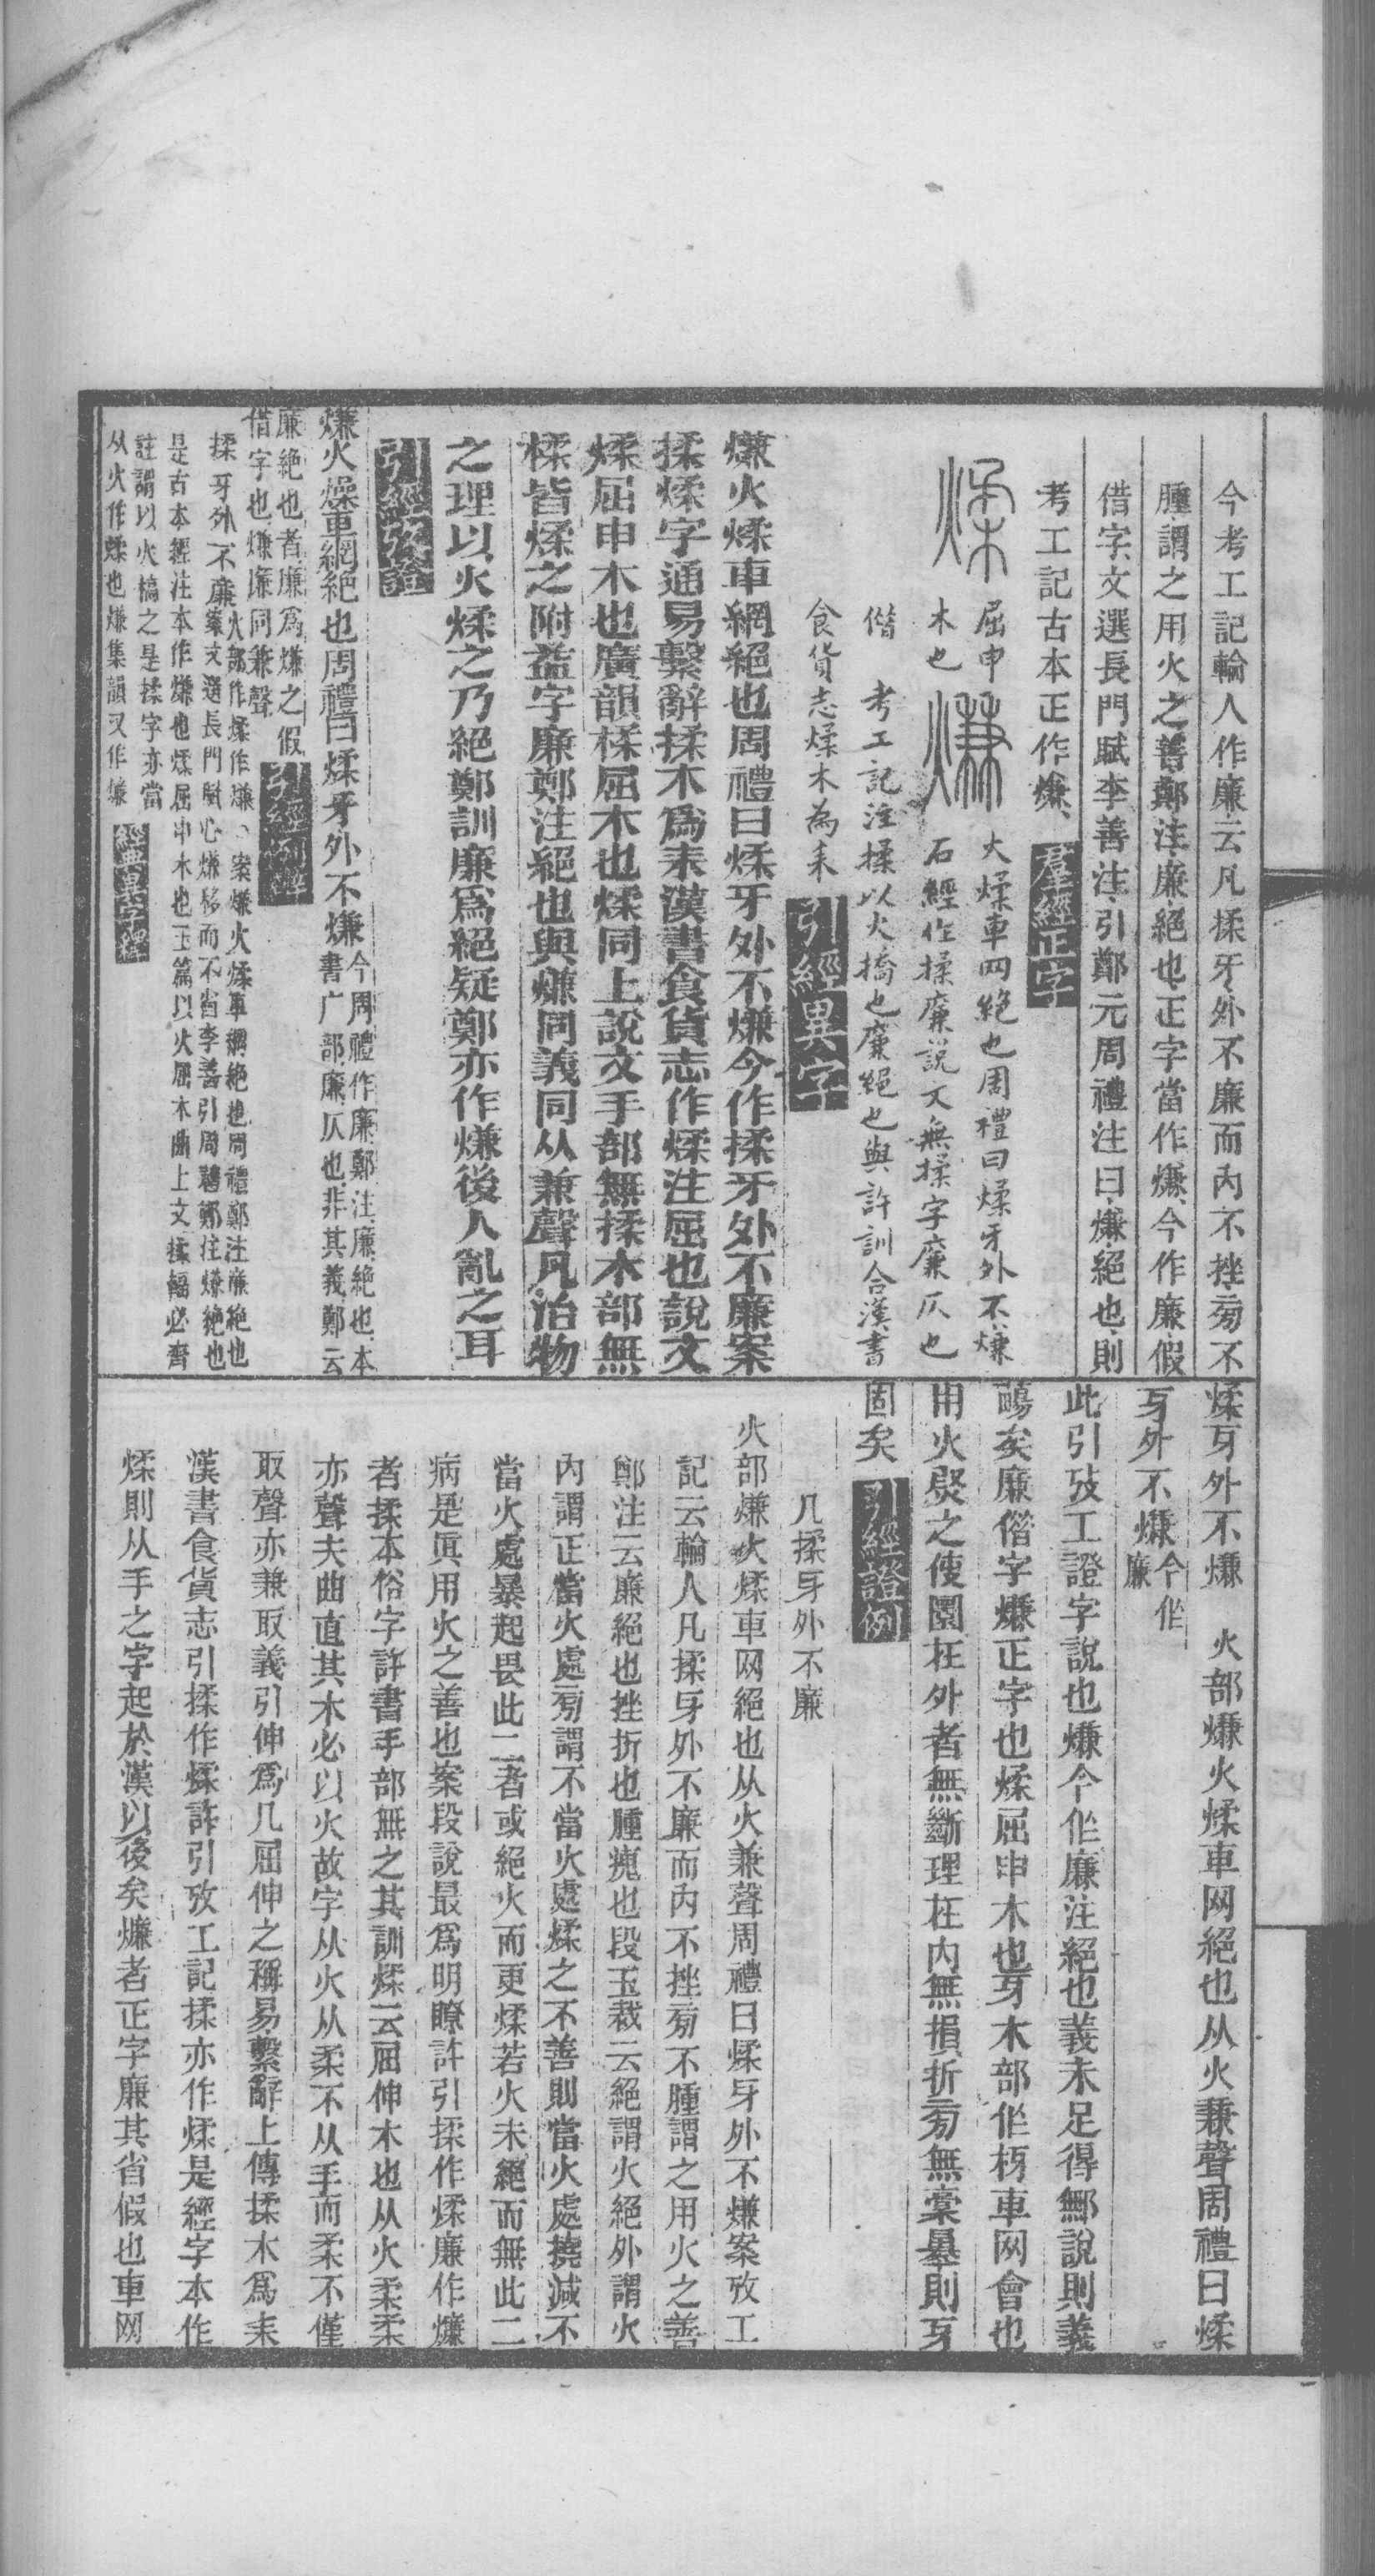 今考工記輪人作廉云凡揉牙外不廉而內不挫旁不
腫謂之用火之善鄭注廉絕也正字當作熑今作廉假
借字文選長門賦李善注引鄭元周禮注曰熑絕也則
考工記古本正作熑 羣經正字
煣 屈申
木也
熑 火煣車网絕也周禮曰煣牙外不熑
石經作揉廉說文無揉字廉仄也
偕 考工記注揉以火撟也廉絕也與許訓合漢書
食貨志煣木為耒 引經異字
熑火煣車網絕也周禮曰煣牙外不熑今作揉牙外不廉案
揉煣字通易繫辭揉木爲耒漢書食貨志作煣注屈也說文
煣屈申木也廣韻楺屈木也煣同上說文手部無揉木部無
楺皆煣之附益字廉鄭注絕也與熑同義同从兼聲凡治物
之理以火煣之乃絕鄭訓廉爲絕疑鄭亦作熑後人亂之耳
引經攷證
熑火燥車網絕也周禮曰煣牙外不熑 今周禮作廉鄭注廉絕也本
書广部廉仄也非其義鄭云
廉絕也者廉爲熑之假
借字也熑廉同兼聲 引經例辨
揉牙外不廉 火部作煣作熑 案熑火煣車網絕也周禮鄭注廉絕也
案文選長門賦心熑移而不省李善引周禮鄭注熑絕也
是古本經注本作熑也煣屈申木也玉篇以火屈木曲上文揉輻必齊
註謂以火槁之是揉字亦當
从火作煣也熑集韻又作㷙 經典異字釋
煣牙外不熑 火部熑火煣車网絕也从火兼聲周禮曰煣
牙外不熑 今作
廉
此引攷工證字說也熑今作廉注絕也義未足得鄦說則義
鬯矣廉偕字熑正字也煣屈申木也牙木部作枒車网會也
用火熒之使圜在外者無斷理在内無損折旁無橐暴則牙
固矣 引經證例
凡揉牙外不廉
火部熑火煣車网絕也从火兼聲周禮曰煣牙外不熑案攷工
記云輪人凡揉牙外不廉而內不挫旁不腫謂之用火之善
鄭注云廉絕也挫折也腫瘣也段玉裁云絕謂火絕外謂火
內謂正當火處旁謂不當火處煣之不善則當火處撓減不
當火處暴起畏此二者或絕火而更煣若火未絕而無此二
病是眞用火之善也案段說最爲明瞭許引揉作煣廉作熑
者揉本俗字許書手部無之其訓煣云屈伸木也从火柔柔
亦聲夫曲直其木必以火故字从火从柔不从手而柔不僅
取聲亦兼取義引伸爲凡屈伸之稱易繫辭上傳揉木爲耒
漢書食貨志引揉作煣許引攷工記揉亦作煣是經字本作
煣則从手之字起於漢以後矣熑者正字廉其省假也車网